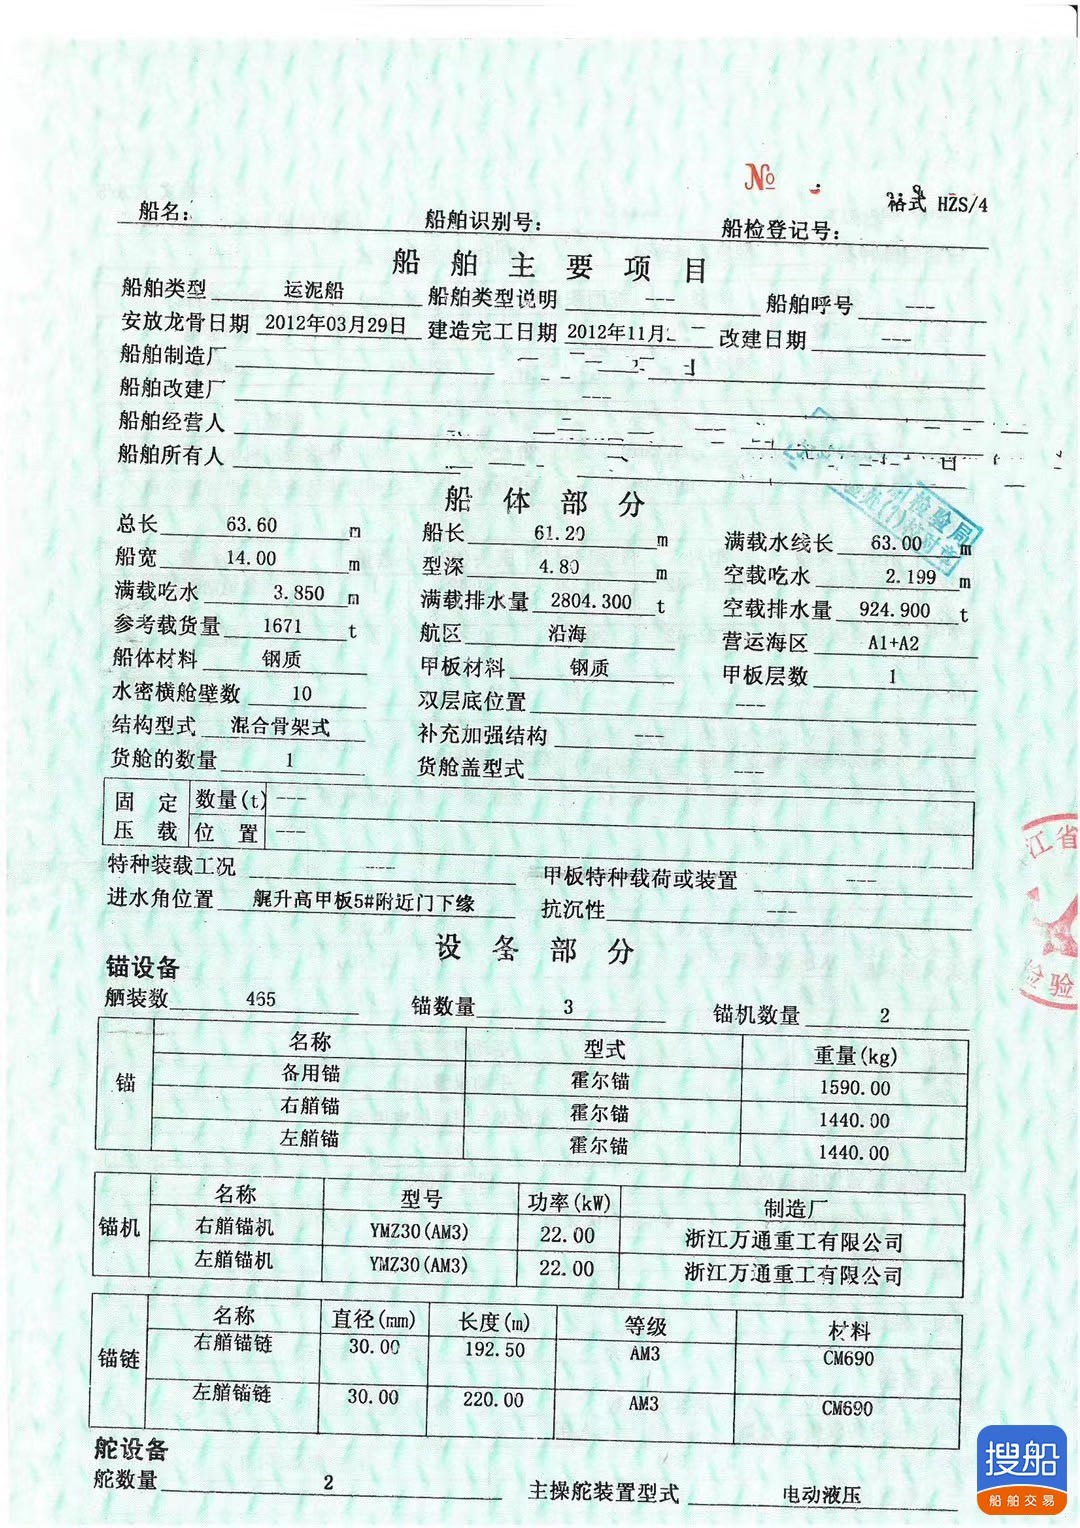 №
格式 HZS/4
船名: 船舶识别号: 船检登记号:
船舶主要项目
船舶类型 运泥船 船舶类型说明 --- 船舶呼号 ---
安放龙骨日期 2012年03月29日 建造完工日期 2012年11月 改建日期 ---
船舶制造厂
船舶改建厂 ---
船舶经营人
船舶所有人
船体部分
总长 63.60 m 船长 61.20 m 满载水线长 63.00 m
船宽 14.00 m 型深 4.80 m 空载吃水 2.199 m
满载吃水 3.850 m 满载排水量 2804.300 t 空载排水量 924.900 t
参考载货量 1671 t 航区 沿海 营运海区 A1+A2
船体材料 钢质 甲板材料 钢质 甲板层数 1
水密横舱壁数 10 双层底位置 ---
结构型式 混合骨架式 补充加强结构 ---
货舱的数量 1 货舱盖型式 ---
固定压载 数量(t) ---
位置 ---
特种装载工况 ---- 甲板特种载荷或装置 ---
进水角位置 艉升高甲板5#附近门下缘 抗沉性 ---
设备部分
锚设备
舾装数 465 锚数量 3 锚机数量 2
锚
名称 型式 重量(kg)
备用锚 霍尔锚 1590.00
右艏锚 霍尔锚 1440.00
左艏锚 霍尔锚 1440.00
锚机
名称 型号 功率(kW) 制造厂
右艏锚机 YMZ30(AM3) 22.00 浙江万通重工有限公司
左艏锚机 YMZ30(AM3) 22.00 浙江万通重工有限公司
锚链
名称 直径(mm) 长度(m) 等级 材料
右艏锚链 30.00 192.50 AM3 CM690
左艏锚链 30.00 220.00 AM3 CM690
舵设备
舵数量 2 主操舵装置型式 电动液压
检验局
江省
检验
搜船
船舶交易